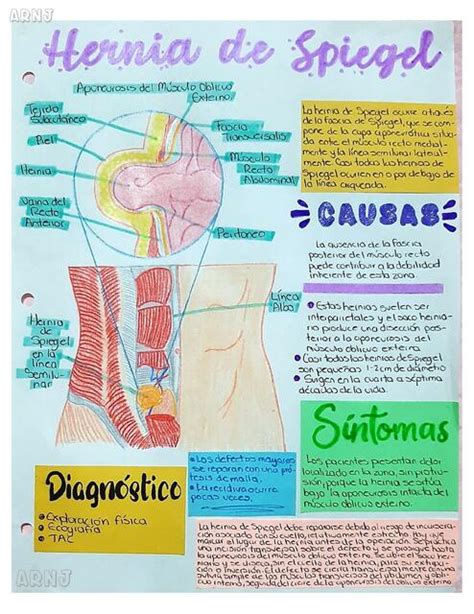 ARNJ
Hernia de Spiegel
Aponeurosis del Músculo Oblicuo
Externo
Tejido
Subcutáneo
Piel
Hernia
Vaina del
Recto
Anterior
Fascia
Transversalis
Músculo
Recto
Abdominal
Peritoneo
La hernia de Spiegel ocurre a través
de la fascia de Spiegel, que se com-
pone de la capa aponeurótica situa-
da entre el músculo recto medial-
mente y la línea semilunar lateral-
mente. Casi todas las hernias de
Spiegel ocurren en o por debajo de
la línea arqueada.
CAUSAS
La ausencia de la fascia
posterior del músculo recto
puede contribuir a la debilidad
inherente de esta zona.
Línea
Alba
Hernia
de
Spiegel
en la
línea
Semilu-
nar
Estas hernias suelen ser
interparietales y el saco hernia-
rio produce una disección pos-
terior a la aponeurosis del
músculo oblicuo externo.
Casi todas las hernias de Spiegel
son pequeñas 1-2cm de diámetro
Surgen en la cuarta a séptima
décadas de la vida.
Síntomas
Los pacientes presentan dolor
localizado en la zona, sin protru-
sión, porque la hernia se sitúa
bajo la aponeurosis intacta del
músculo oblicuo externo.
Diagnóstico
Exploración física
Ecografía
TAC
Los defectos mayores
se reparan con una pró-
tesis de malla.
La recidiva ocurre
pocas veces.
La hernia de Spiegel debe repararse debido al riesgo de incarceración
asociado con su cuello, relativamente estrecho. Hay que
marcar el lugar de la hernia antes de la operación. Se práctica
una incisión transversal sobre el defecto y se prosigue hasta
la aponeurosis del músculo oblicuo externo. Se abre el saco hernia-
rio y se diseca, sin el cuello de la hernia, para su extirpa-
ción o inversión. El defecto se cierra transversalmente con una
sutura simple de los músculos transverso del abdomen y oblicuo
interno, seguida del cierre de la aponeurosis del oblicuo externo.
ARNJ